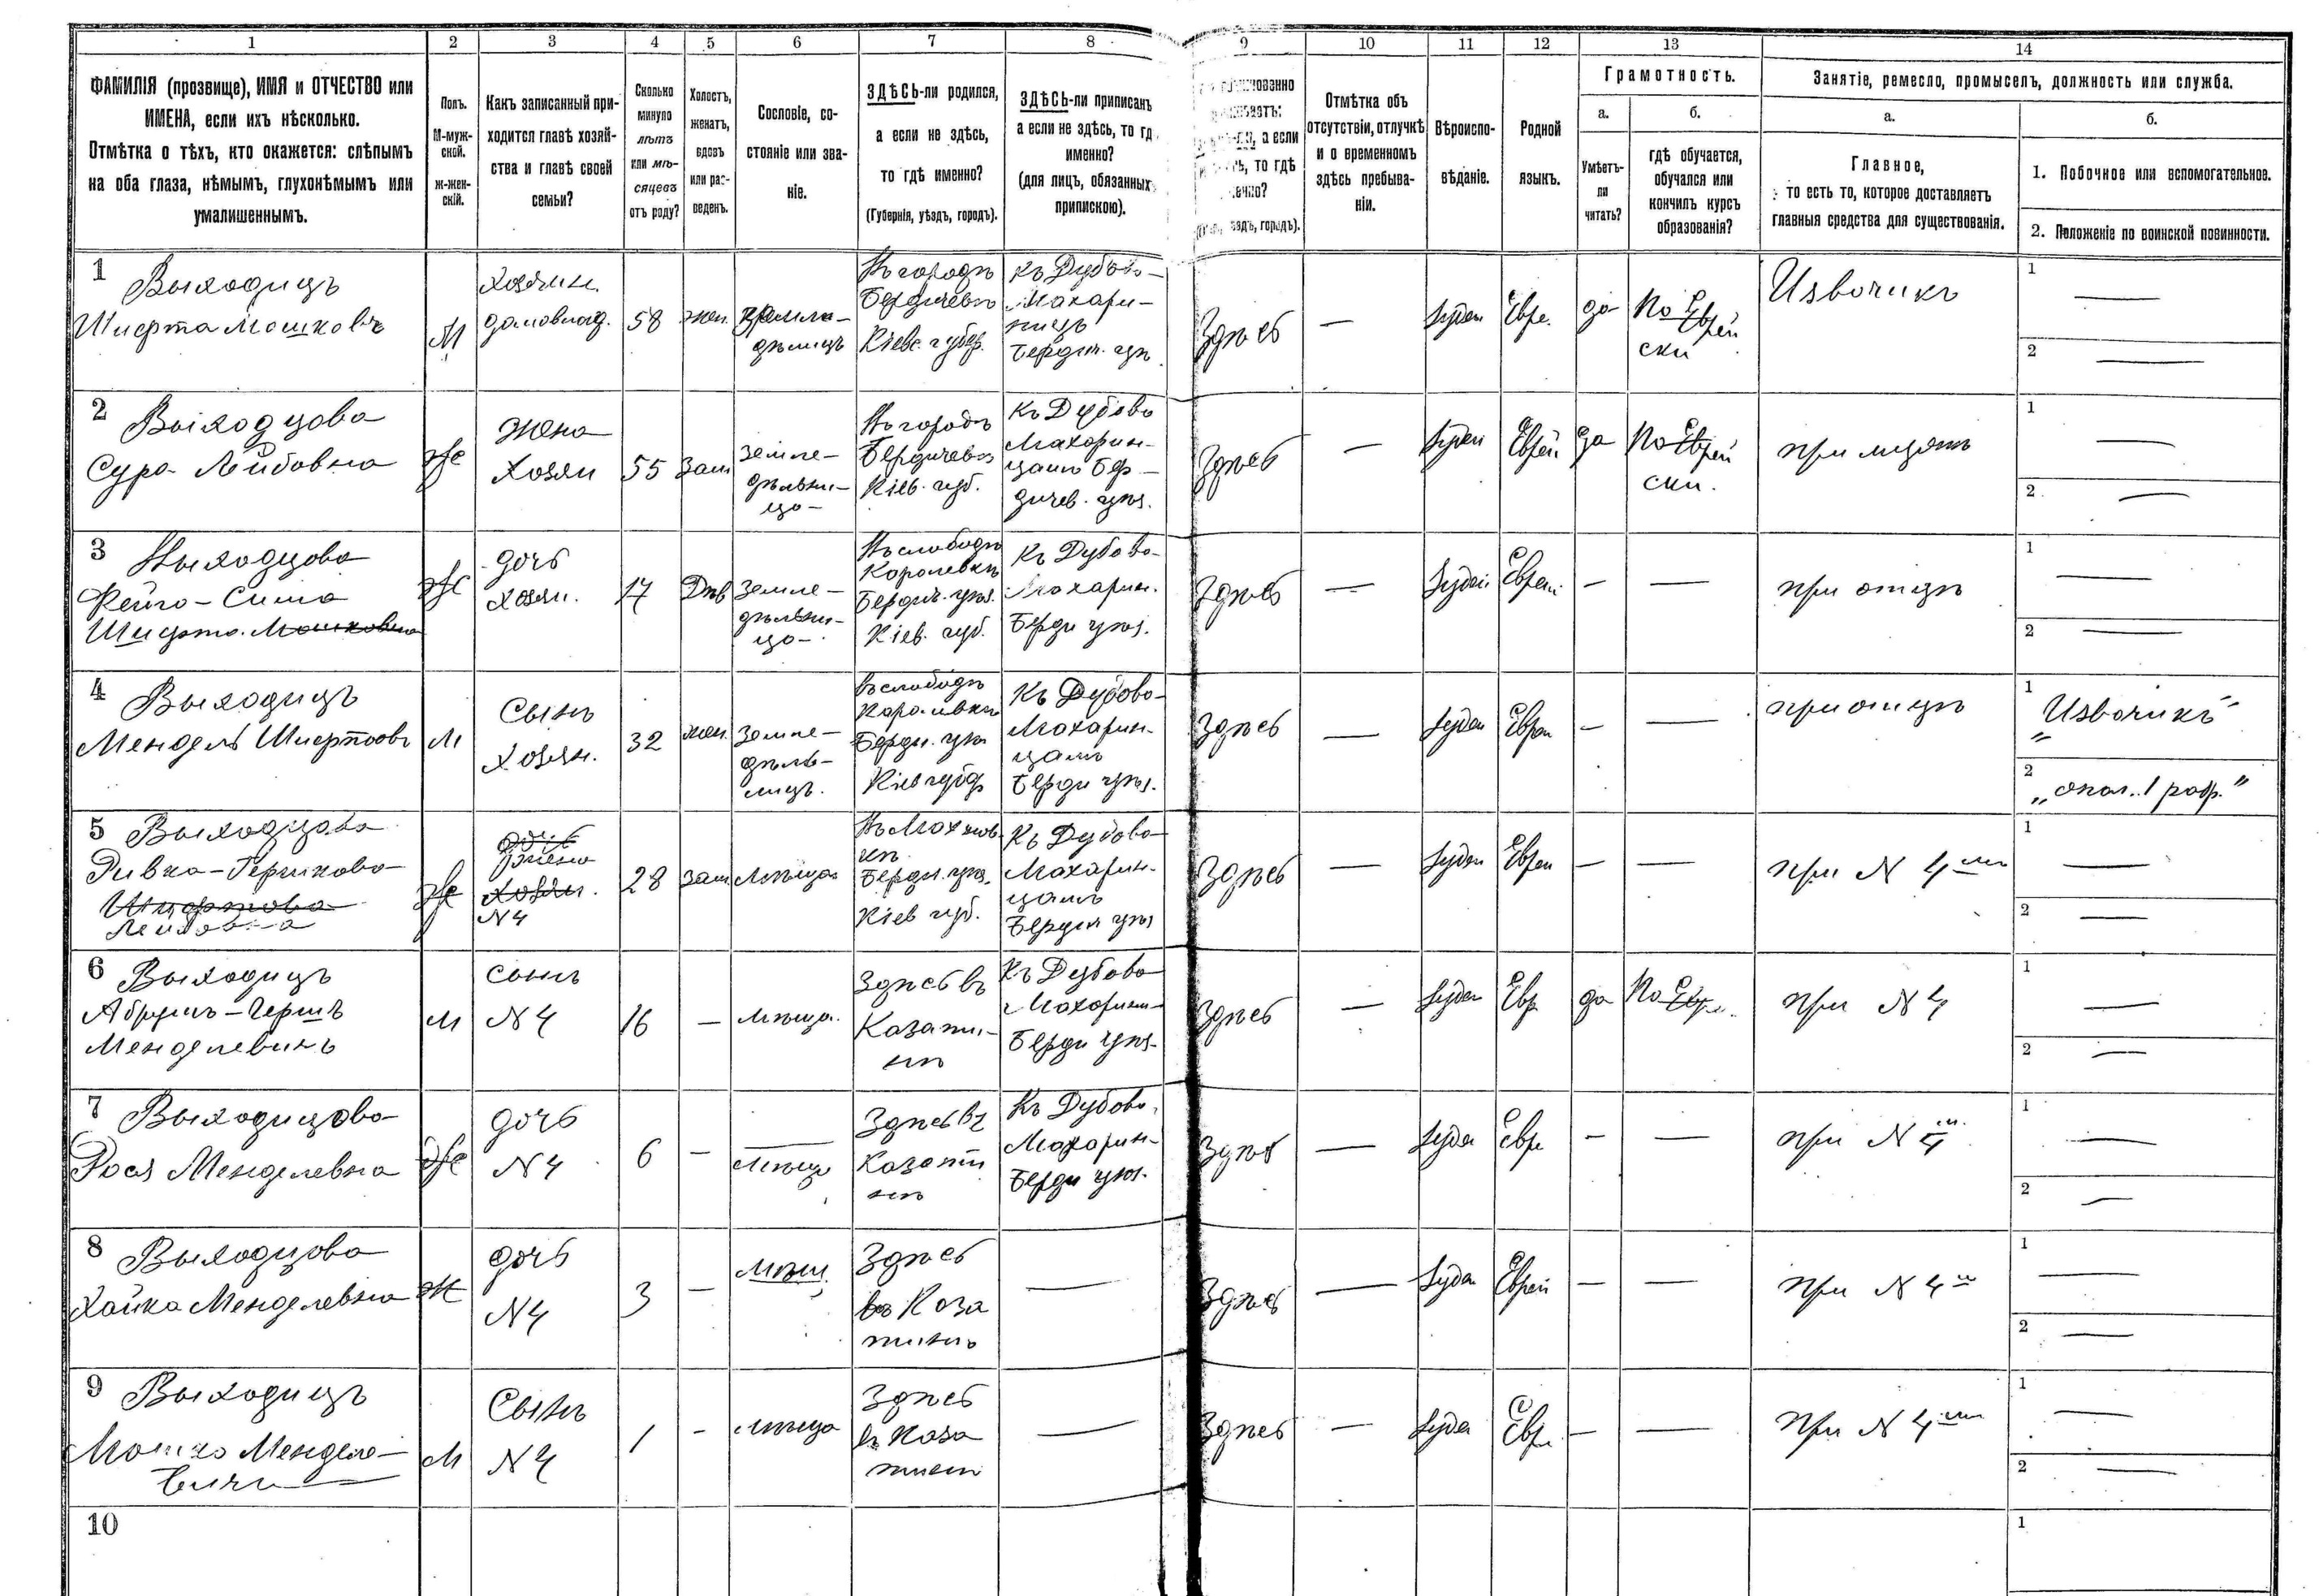 1 2 3 4 5 6 7 8 9 10 11 12 13 14
ФАМИЛІЯ (прозвище), ИМЯ и ОТЧЕСТВО или
ИМЕНА, если ихъ нѣсколько.
Отмѣтка о тѣхъ, кто окажется: слѣпымъ
на оба глаза, нѣмымъ, глухонѣмымъ или
умалишеннымъ.
Полъ.
М-муж-
ской.
Ж-жен-
скій.
Какъ записанный при-
ходится главѣ хозяй-
ства и главѣ своей
семьи?
Сколько
минуло
лѣтъ
или мѣ-
сяцевъ
отъ роду?
Холостъ,
женатъ,
вдовъ
или раз-
веденъ.
Сословіе, со-
стояніе или зва-
ніе.
ЗДѢСЬ-ли родился,
а если не здѣсь,
то гдѣ именно?
(Губернія, уѣздъ, городъ).
ЗДѢСЬ-ли приписанъ
а если не здѣсь, то гд
именно?
(для лицъ, обязанныхъ
припискою).
а если
то гдѣ
городъ).
Отмѣтка объ
отсутствіи, отлучкѣ
и о временномъ
здѣсь пребыва-
ніи.
Вѣроиспо-
вѣданіе.
Родной
языкъ.
Грамотность.
а.
Умѣетъ-
ли
читать?
б.
гдѣ обучается,
обучался или
кончилъ курсъ
образованія?
Занятіе, ремесло, промыселъ, должность или служба.
а.
Главное,
то есть то, которое доставляетъ
главныя средства для существованія.
б.
1. Побочное или вспомогательное.
2. Положеніе по воинской повинности.
1 Выходицъ
Мошковъ
М
Хозяинъ
58
жен.
Въ городѣ
Бердичевѣ
Кіевс. губер.
Къ Дубово-
Махари-
Здѣсь
—
Іудей
Евре.
да
По Еврей
ски
Извозчикъ
1 —
2 —
2 Выходцова
Сура Лейбовна
Ж
Жена
Хозяи
55
Зам
Земле-
дѣльни-
ца
Въ городѣ
Бердичевѣ
Кіев. губ.
Къ Дубово
Махарин-
цамъ Бер-
дичев. уѣз.
Здѣсь
—
Іудей
Еврей
да
По Еврей
ски.
при мужѣ
1 —
2 —
3 Выходцова
Фейга-Сима
Ж
дочь
Хозяи.
17
Дѣв
Земле-
дѣльни-
ца
Въ слободѣ
Королевкѣ
Бердич. уѣз.
Кіев. губ.
Къ Дубово-
Махарин.
Берди уѣз.
Здѣсь
—
Іудей
Еврей
—
—
при отцѣ
1 —
2 —
4 Выходицъ
Мендель
М
Сынъ
Хозяи.
32
жен.
Земле-
дѣль-
Въ слободѣ
Берди. уѣз
Кіев губер
Къ Дубово-
Махарин-
цамъ
Берди уѣз.
Здѣсь
—
Іудей
Евреи
—
—
при отцѣ
1 „Извозчикъ"
2 „опол. 1 разр."
5 Выходцова
Ривка-Гершкова
Ж
жена
Хозяи.
N4
28
зам
Мѣща
Берди. уѣз.
Кіев губ.
Къ Дубово-
Махарин-
цамъ
Берди уѣз
Здѣсь
—
Іудей
Евреи
—
—
при N 4мъ
1 —
2 —
6 Выходицъ
Абрумъ-Гершъ
Менделевичъ
М
сынъ
N4
16
—
Мѣща.
Здѣсь въ
Казати-
нѣ
Къ Дубово
Махарин-
Берди уѣз.
Здѣсь
—
Іудей
Евр
да
По Евр.
при N 4
1 —
2 —
7 Выходицова
Рося Менделевна
Ж
дочь
N4
6
—
Мѣща
Здѣсь въ
Казати
нѣ
Къ Дубово.
Махарин-
Берди уѣз.
Здѣсь
—
Іуде
евре
—
—
при N 4
1 —
2 —
8 Выходцова
Хайка Менделевна
Ж
дочь
N4
3
—
Мѣщ.
Здѣсь
въ Каза
тинѣ
—
Здѣсь
—
Іуде
Еврей
—
—
при N 4м
1 —
2 —
9 Выходицъ
Мошко Менделе-
вичъ
М
Сынъ
N4
1
-
Мѣща
Здѣсь
въ Каза
тинѣ
—
Здѣсь
—
Іуде
Евр.
—
—
при N 4мъ
1 —
2 —
10
1